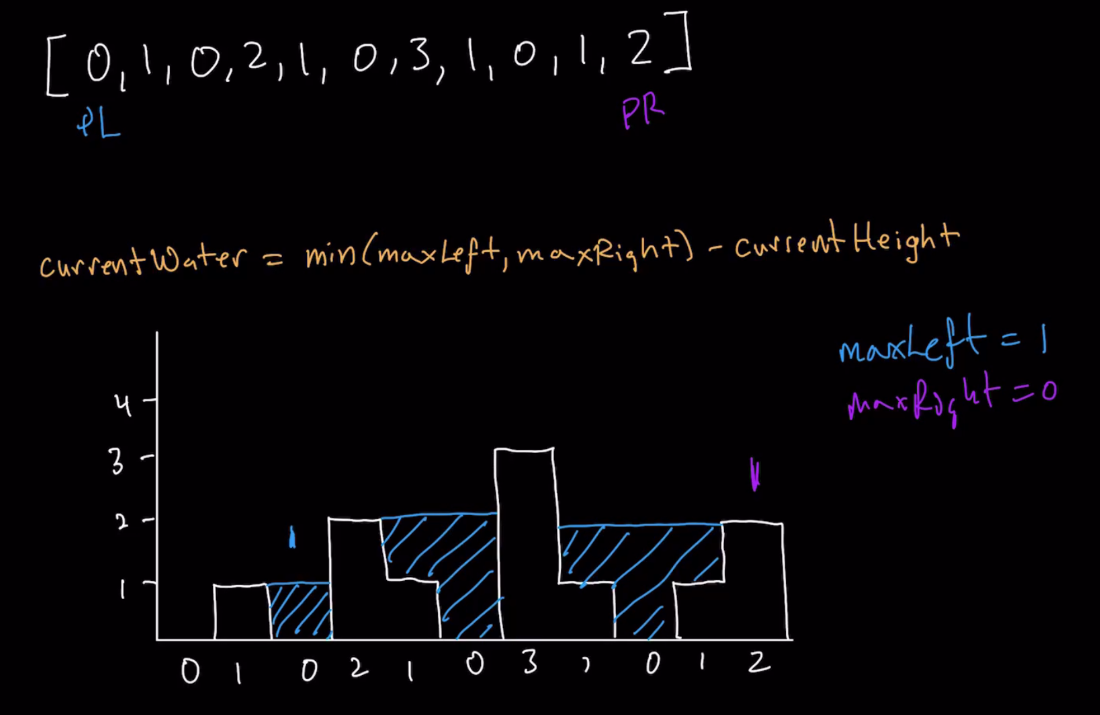 [0,1,0,2,1,0,3,1,0,1,2]
PL PR
currentWater = min(maxLeft, maxRight) - currentHeight
maxLeft = 1
maxRight = 0
4
3
2
1
0 1 0 2 1 0 3 0 1 2